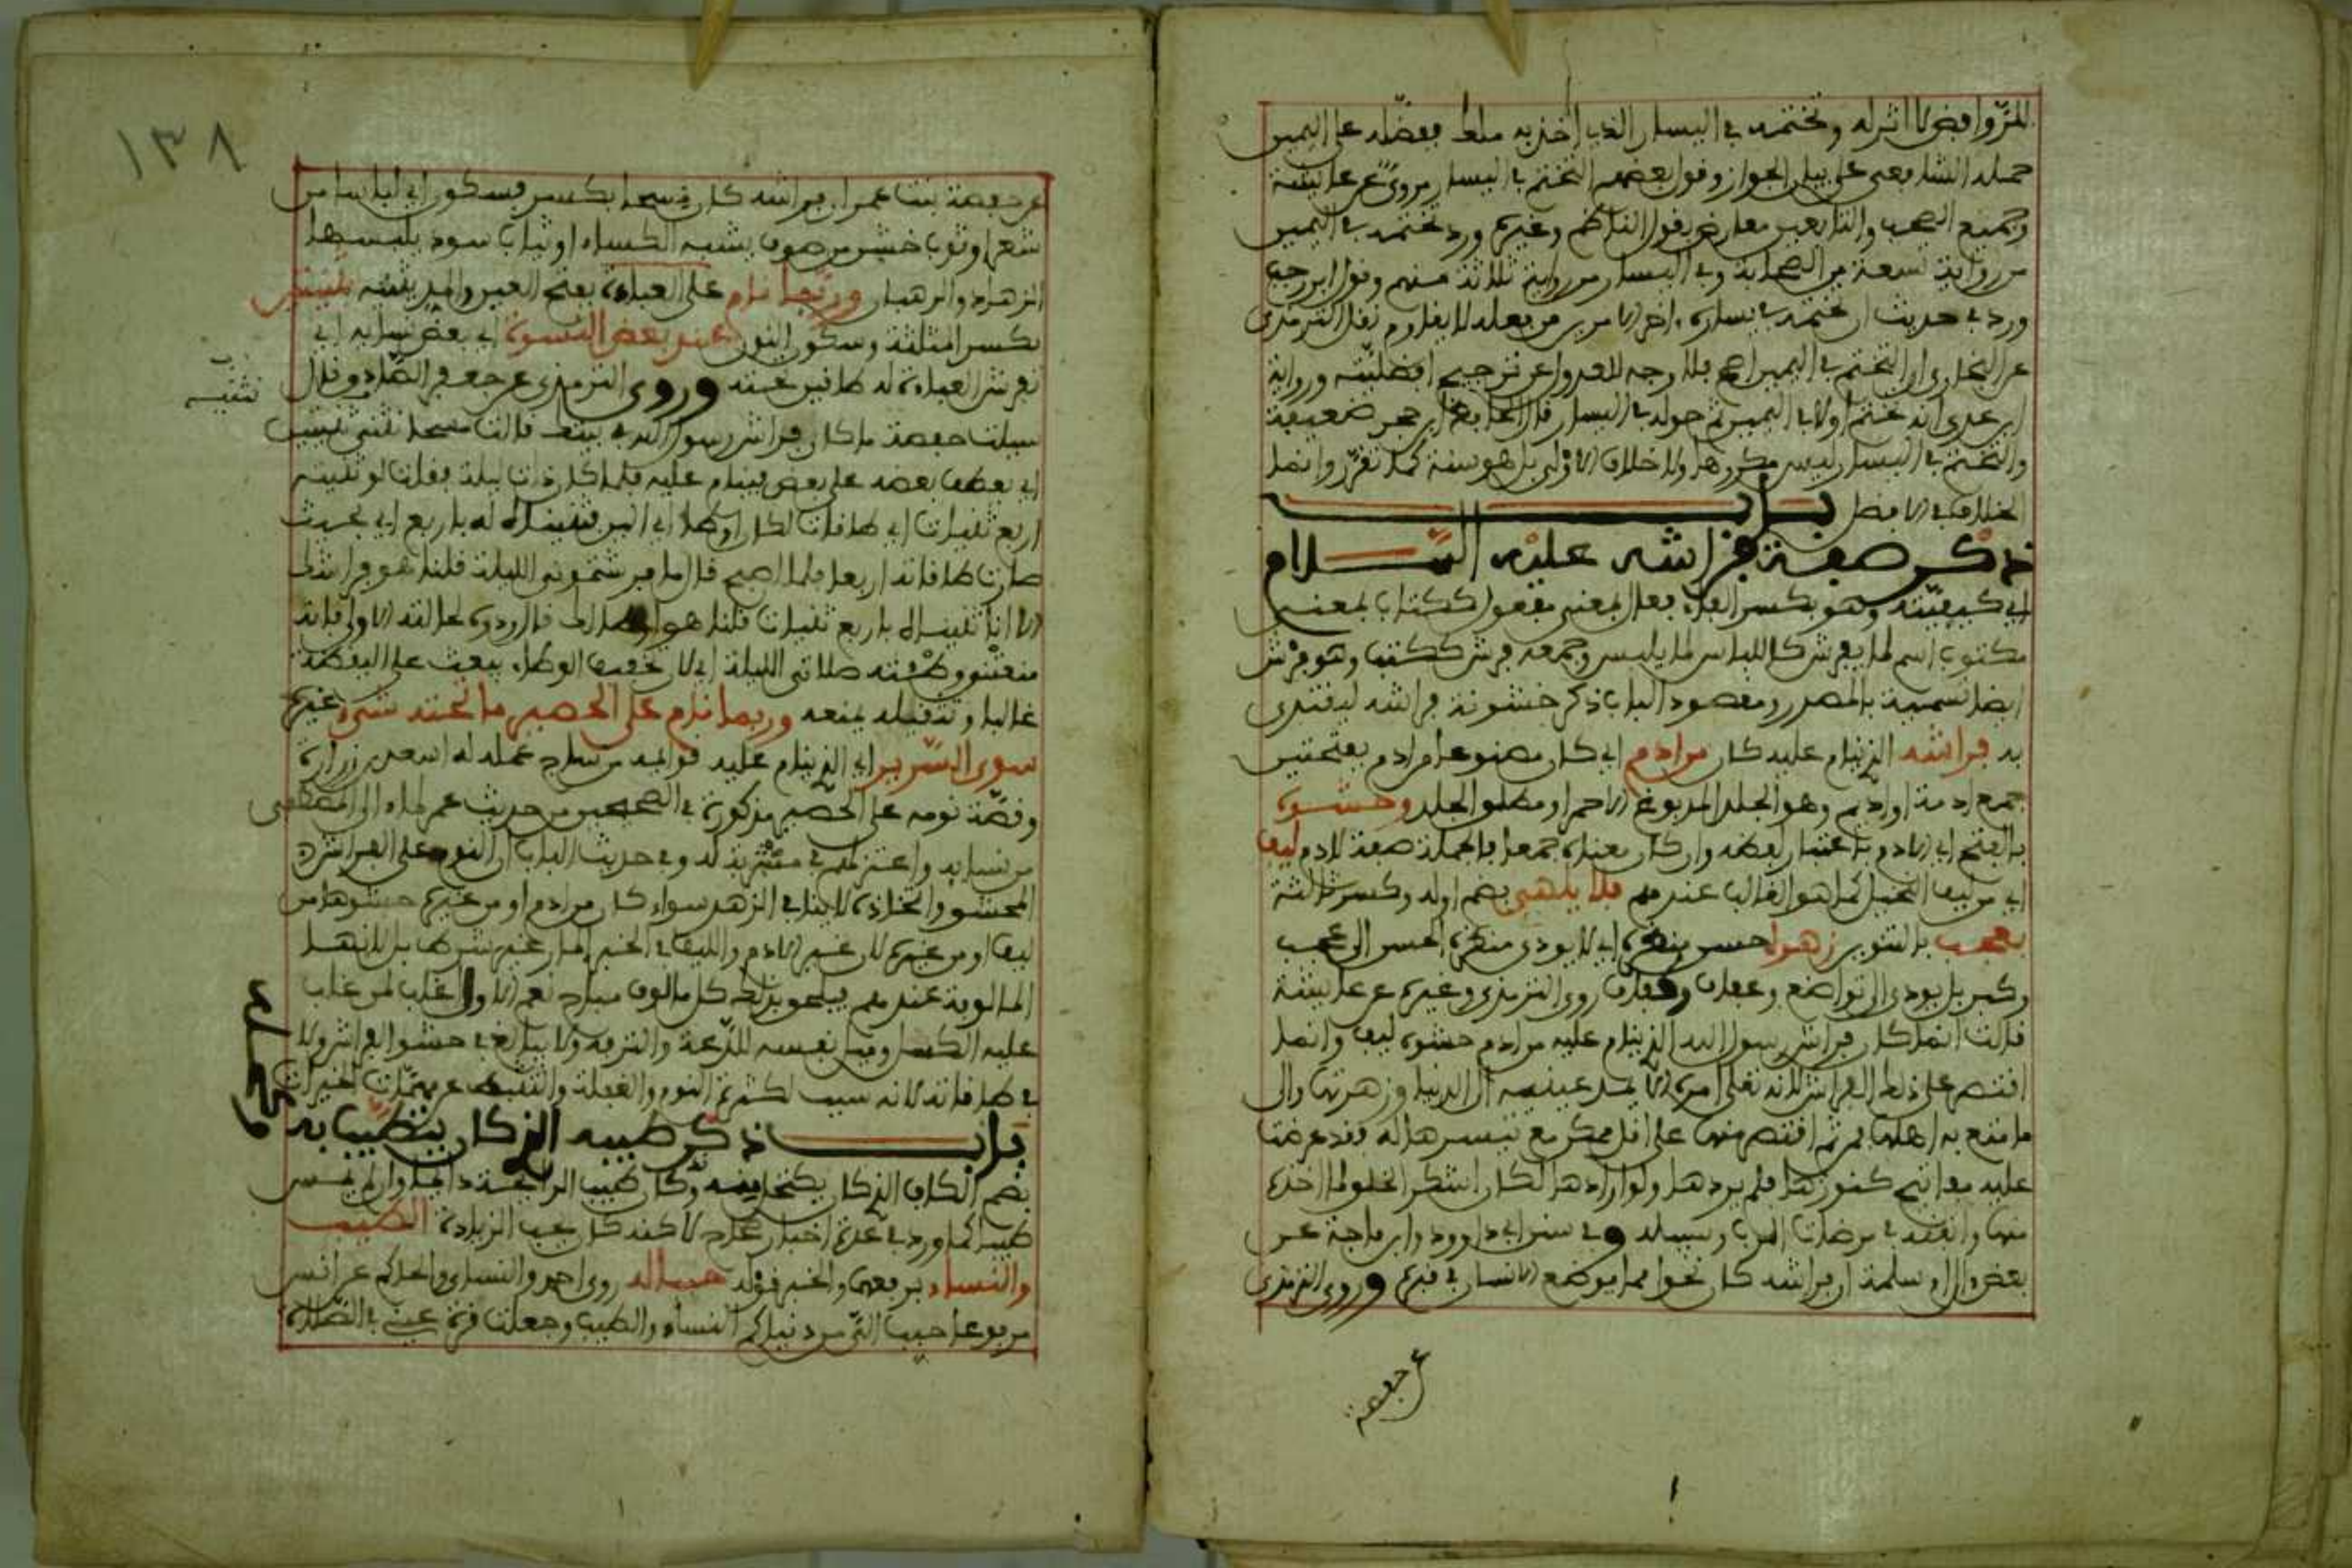 حمله الشافعي على بيان الجواز وقول بعضهم التختم في اليسار مروي عن عائشة
وجميع الصحب والتابعين معارض بقول الناظم وغيره ورد تختمه في اليمين
من رواية تسعة من الصحابة وفي اليسار من رواية ثلاثة منهم وقول ابن رجب
ورد في حديث ان تختمه في يساره اخر الامرين من فعله لا يقاوم نقل الترمذي
عن البخاري ان التختم في اليمين اصح فلا وجه للعدول عن ترجيح افضليته ورواية
ابن عدي انه تختم اولا في اليمين ثم حوله في اليسار قال الحافظ ابن حجر ضعيفة
والتختم في اليسار ليس مكروها ولا خلاف الاولى بل هو سنة كما تقرر وانما
الخلاف في الافضل باب
ذكر صفة فراشه عليه السلام
اي كيفيته وهو بكسر الفاء فعال بمعنى مفعول ككتاب بمعنى
مكتوب اسم لما يفرش كاللباس لما يلبس وجمعه فرش ككتب وهو فرش
ايضا تسمية بالمصدر ومقصود الباب ذكر خشونة فراشه ليقتدى
به فراشه الذي ينام عليه كان من ادم اي كان مصنوعا من ادم بفتحتين
جمع ادمة او اديم وهو الجلد المدبوغ الاحمر او مطلق الجلد وحشوه
بالفتح اي الادم باعتبار لفظه وان كان معناه جمعا فالجملة صفة لادم ليف
اي من ليف النخيل كما هو الغالب عندهم فلا يلهي بضم اوله وكسر ثالثه
بعجب بالتنوين زهوه حسن منظره اي لا يودي منظره الحسن الى عجب
وكبر بل يودي الى تواضع روى الترمذي وغيره عن عائشة
قالت انما كان فراش رسول الله الذي ينام عليه من ادم حشوه ليف وانما
اقتصر على ذلك الفراش لانه تعالى امره الا يمد عينيه الى الدنيا وزهرتها والى
ما متع به اهلها فمن ثم اقتصر منها على اقل ممكن مع تيسرها له فقد عرضت
عليه مفاتيح كنوزها فلم يردها ولو ارادها لكان اشكر الخلق لما اخذه
منها وانفقه في مرضات الرب وسبيله وفي سنن ابي داوود وابن ماجة عن
بعض ال ام سلمة ان فراشه كان نحوا مما يوضع الانسان في قبره وروى الترمذي
عن حفصة
١٣٨
عن حفصة بنت عمر ان فراشه كان مسحا بكسر فسكون اي لباسا من
شعر او ثوب خشن من صوف يشبه الكساء او ثياب سود يلبسها
الزهاد والرهبان وربما نام على العباءة بفتح العين والمد بثنيه ثنيتين
بكسر المثلثة وسكون النون عند بعض النسوة اي بعض نسايه اي
تفرش العباءة له طاقين عنده وروى الترمذي عن جعفر الصادق قال
سيلت حفصة ما كان فراش رسول الله في بيتك قالت مسحا نثنيه ثنيتين
اي يعطف بعضه على بعض فينام عليه فلما كان ذات ليلة فقلت لو ثنيته
اربع ثنيات اي طاقات لكان اوطا اي الين فثنيناه له باربع اي بحيث
صارت طاقاته اربعا فلما اصبح قال ما فرشتموني الليلة قلنا هو فراشك
الا انا ثنيناه باربع ثنيات قلنا هو اوطا لك قال ردوه لحالته الاولى فانه
منعتني وطاته صلاتي الليلة اي لان خفيف الوطاء يبعث على اليقظة
غالبا وتثقيله يمنعه وربما نام على الحصير ما تحته شيء غيره
سوى السرير اي الذي ينام عليه قوايمه من ساج عمله له اسعد بن زرارة
وقصة نومه على الحصير مذكورة في الصحيحين من حديث عمر
من نسايه واعتزلهن في مشربة له وفي حديث الباب ان النوم على الفراش
المحشو واتخاذه لا ينافي الزهد سواء كان من ادم او من غيره حشوها من
ليف او من غيره لان عين الادم والليف في الخبر
المالوفة عندهم فيلحق بذلك كل مالوف مباح نعم الاولى لمن غلب
عليه الكسل وميل نفسه للدعة والترفه ولا يبالغ في حشو الفراش ولا
في طاقاته لانه سبب لكثرة النوم والغفلة والتثبط عن مهمات الخيرات
باب ذكر طيبه الذي كان يتطيب به
وكان طيب الرائحة دايما وان لم يمس
طيبا كما ورد في عدة اخبار صحاح لاكنه كان يحب الزيادة الطيب
والنساء روى احمد والنساي والحاكم عن انس
مرفوعا حبب الي من دنياكم النساء والطيب وجعلت قرة عيني في الصلاة